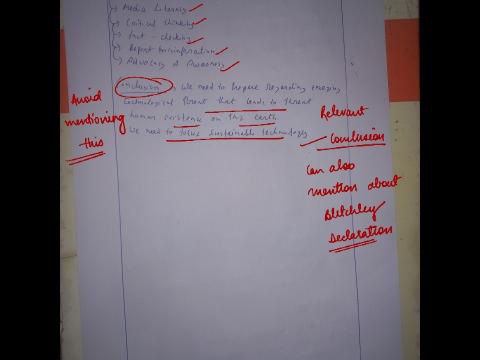 → Media Literacy
→ Critical thinking
→ fact - checking
→ Report misinformation
→ Advocacy & Awareness
Conclusion : We need to prepare regarding emerging
technological threat that leads to threat
human existence on this earth
We need to focus sustainable technologies
Avoid
mentioning
this
Relevant
Conclusion
Can also
mention about
Bletchley
Declaration